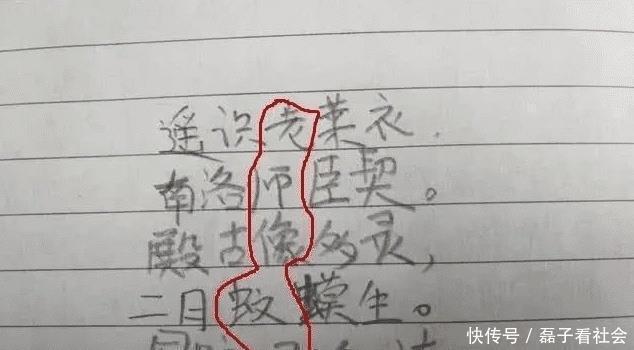 遥识老莱衣.
南洛师臣契。
殿古像多灵,
二月蚊蟆生。
快传号/磊子看社会